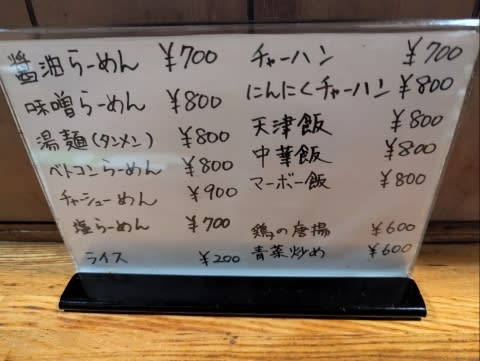 醤油らーめん ¥700
味噌らーめん ¥800
湯麺(タンメン) ¥800
ベトコンらーめん ¥800
チャーシューめん ¥900
塩らーめん ¥700
ライス ¥200
チャーハン ¥700
にんにくチャーハン ¥800
天津飯 ¥800
中華飯 ¥800
マーボー飯 ¥800
鶏の唐揚 ¥600
青菜炒め ¥600